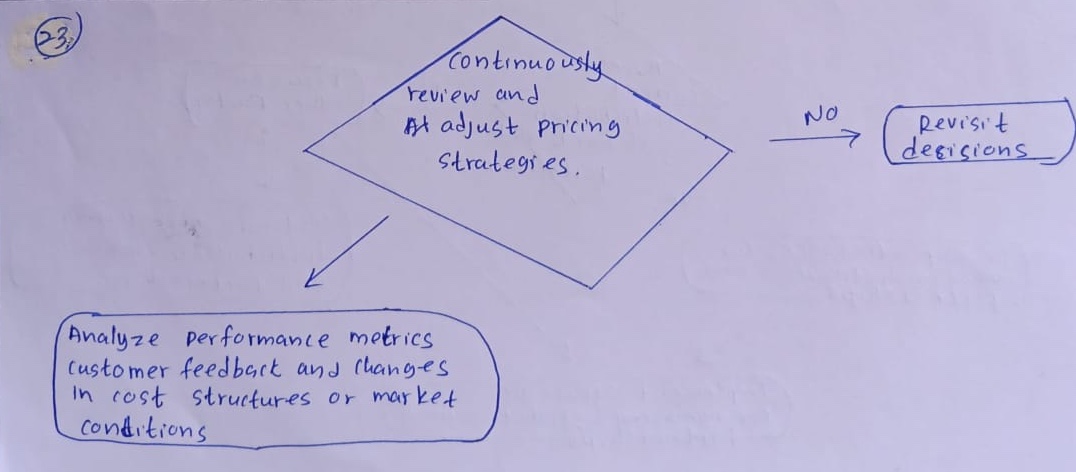 23.
Continuously
review and
adjust pricing
strategies.
NO
Revisit
decisions
Analyze performance metrics
customer feedback and changes
in cost structures or market
conditions